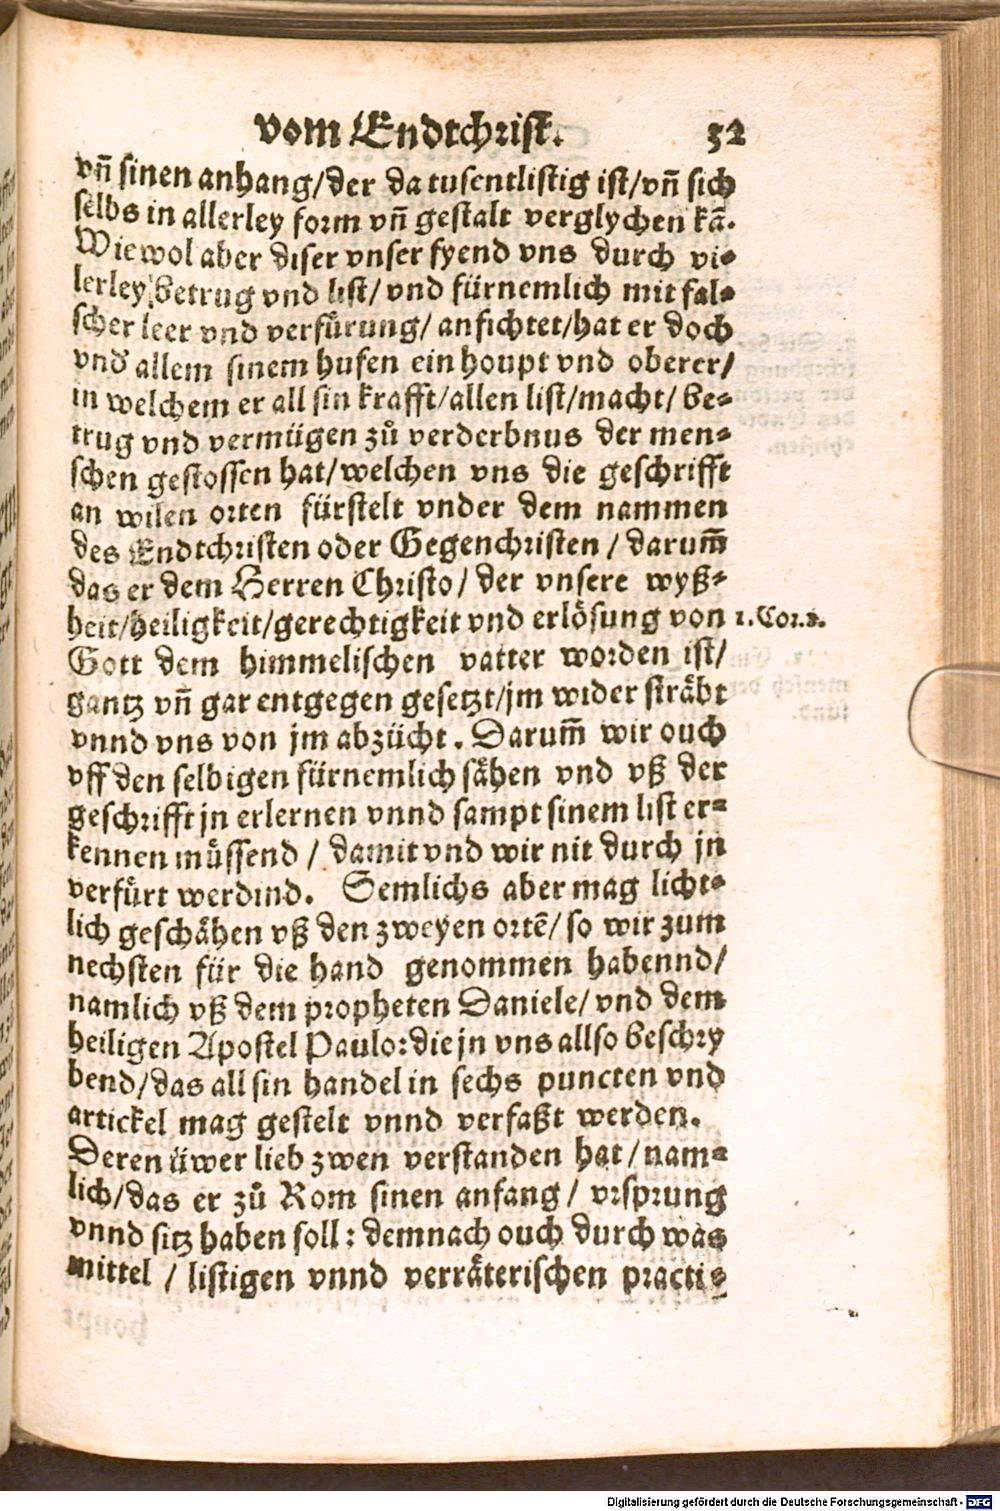 vom Endtchrist. 32
vñ sinen anhang/der da tusentlistig ist/vñ sich
selbs in allerley form vñ gestalt verglychen kā.
Wiewol aber diser vnser fyend vns durch vi-
lerley betrug vnd list/ vnd fürnemlich mit fal-
scher leer vnd verfürung/ anfichtet/hat er doch
vnd allem sinem hufen ein houpt vnd oberer/
in welchem er all sin krafft/allen list/macht/ be-
trug vnd vermügen zů verderbnus der men-
schen gestossen hat/welchen vns die geschrifft
an wilen orten fürstelt vnder dem nammen
des Endtchristen oder Gegenchristen / darum̃
das er dem Herren Christo/ der vnsere wyß-
heit/heiligkeit/gerechtigkeit vnd erlösung von 1. Cor. 1.
Gott dem himmelischen vatter worden ist/
gantz vñ gar entgegen gesetzt/jm wider sträbt
vnnd vns von jm abzücht. Darum̃ wir ouch
vff den selbigen fürnemlich sähen vnd vß der
geschrifft jn erlernen vnnd sampt sinem list er-
kennen müssend / damit vnd wir nit durch jn
verfürt werdind. Semlichs aber mag licht-
lich geschähen vß den zweyen ortē/ so wir zum
nechsten für die hand genommen habennd/
namlich vß dem propheten Daniele/ vnd dem
heiligen Apostel Paulo: die jn vns allso beschry
bend/das all sin handel in sechs puncten vnd
artickel mag gestelt vnnd verfaßt werden.
Deren üwer lieb zwen verstanden hat/ nam-
lich/das er zů Rom sinen anfang/ vrsprung
vnnd sitz haben soll: demnach ouch durch was
mittel / listigen vnnd verräterischen practi-
Digitalisierung gefördert durch die Deutsche Forschungsgemeinschaft - DFG